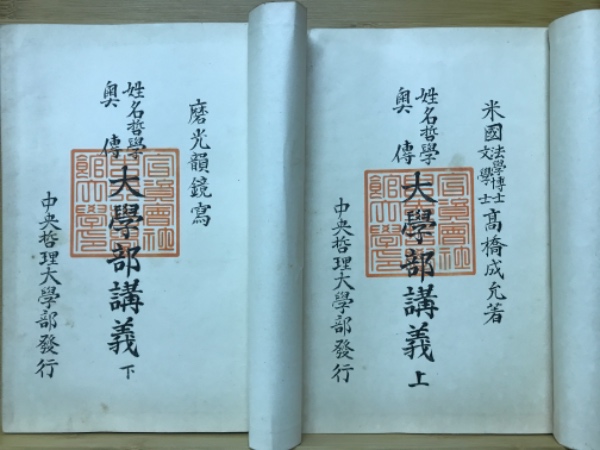 米國法學博士文學士髙橋成允著
姓名哲學奥傳
大學部講義上
中央哲理大學部發行
磨光韻鏡寫
姓名哲學奥傳
大學部講義下
中央哲理大學部發行